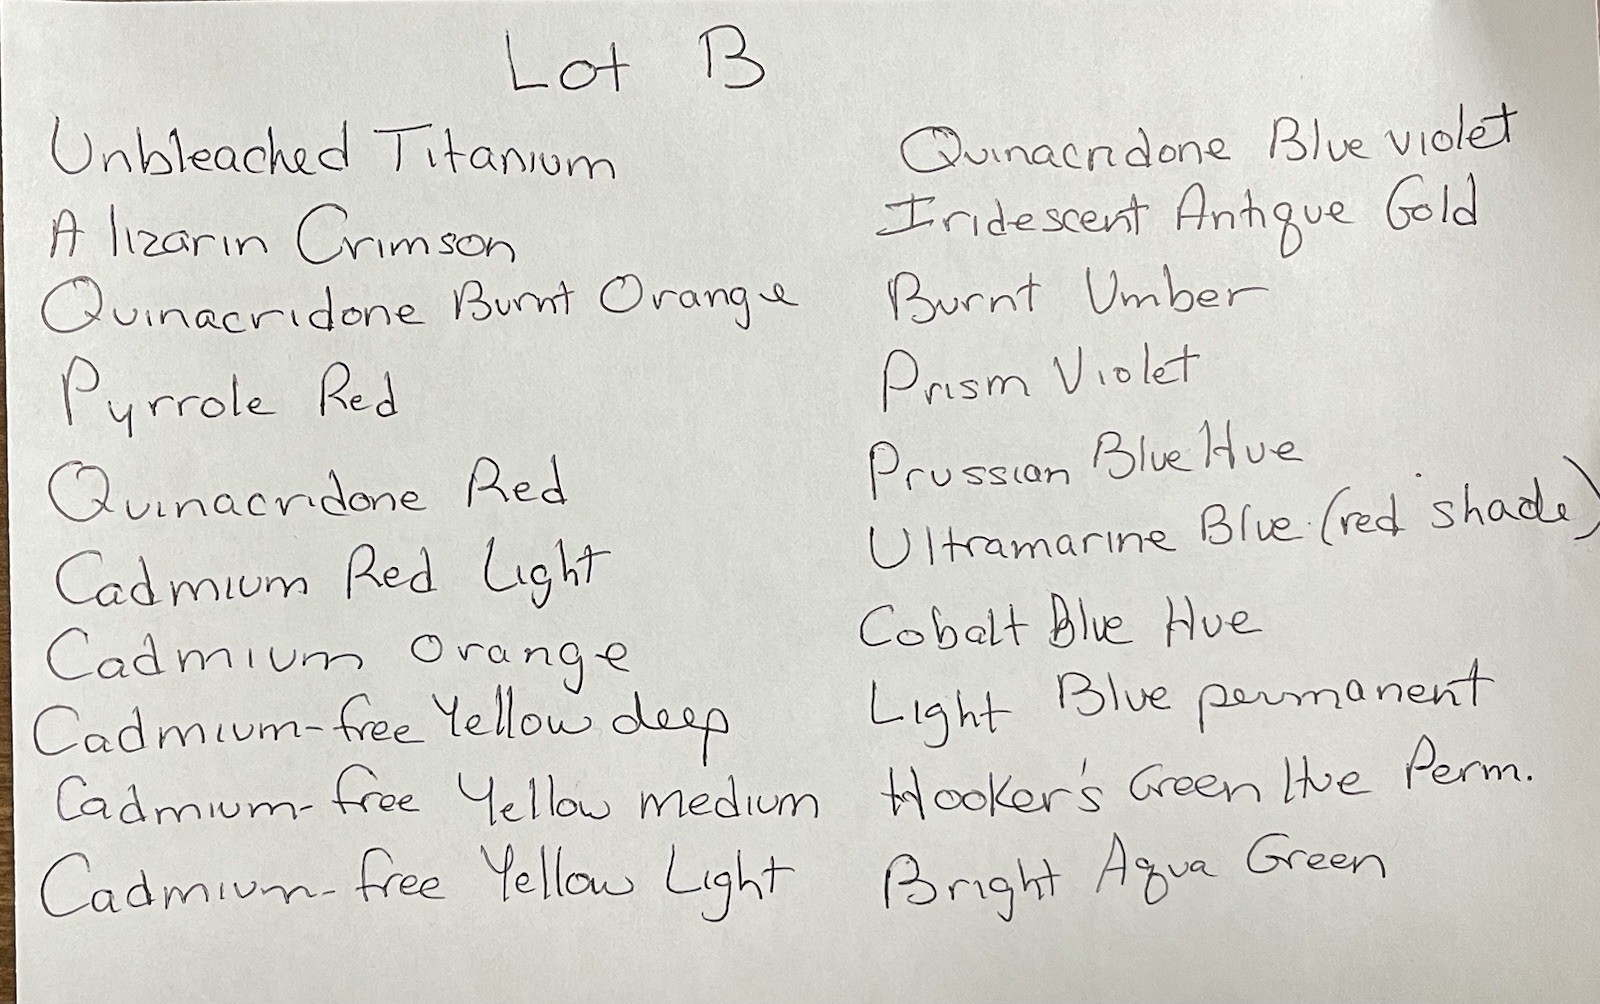 Lot B
Unbleached Titanium
Alizarin Crimson
Quinacridone Burnt Orange
Pyrrole Red
Quinacridone Red
Cadmium Red Light
Cadmium Orange
Cadmium-free Yellow deep
Cadmium-free Yellow medium
Cadmium-free Yellow Light
Quinacridone Blue violet
Iridescent Antique Gold
Burnt Umber
Prism Violet
Prussian Blue Hue
Ultramarine Blue (red shade)
Cobalt Blue Hue
Light Blue permanent
Hooker's Green Hue Perm.
Bright Aqua Green